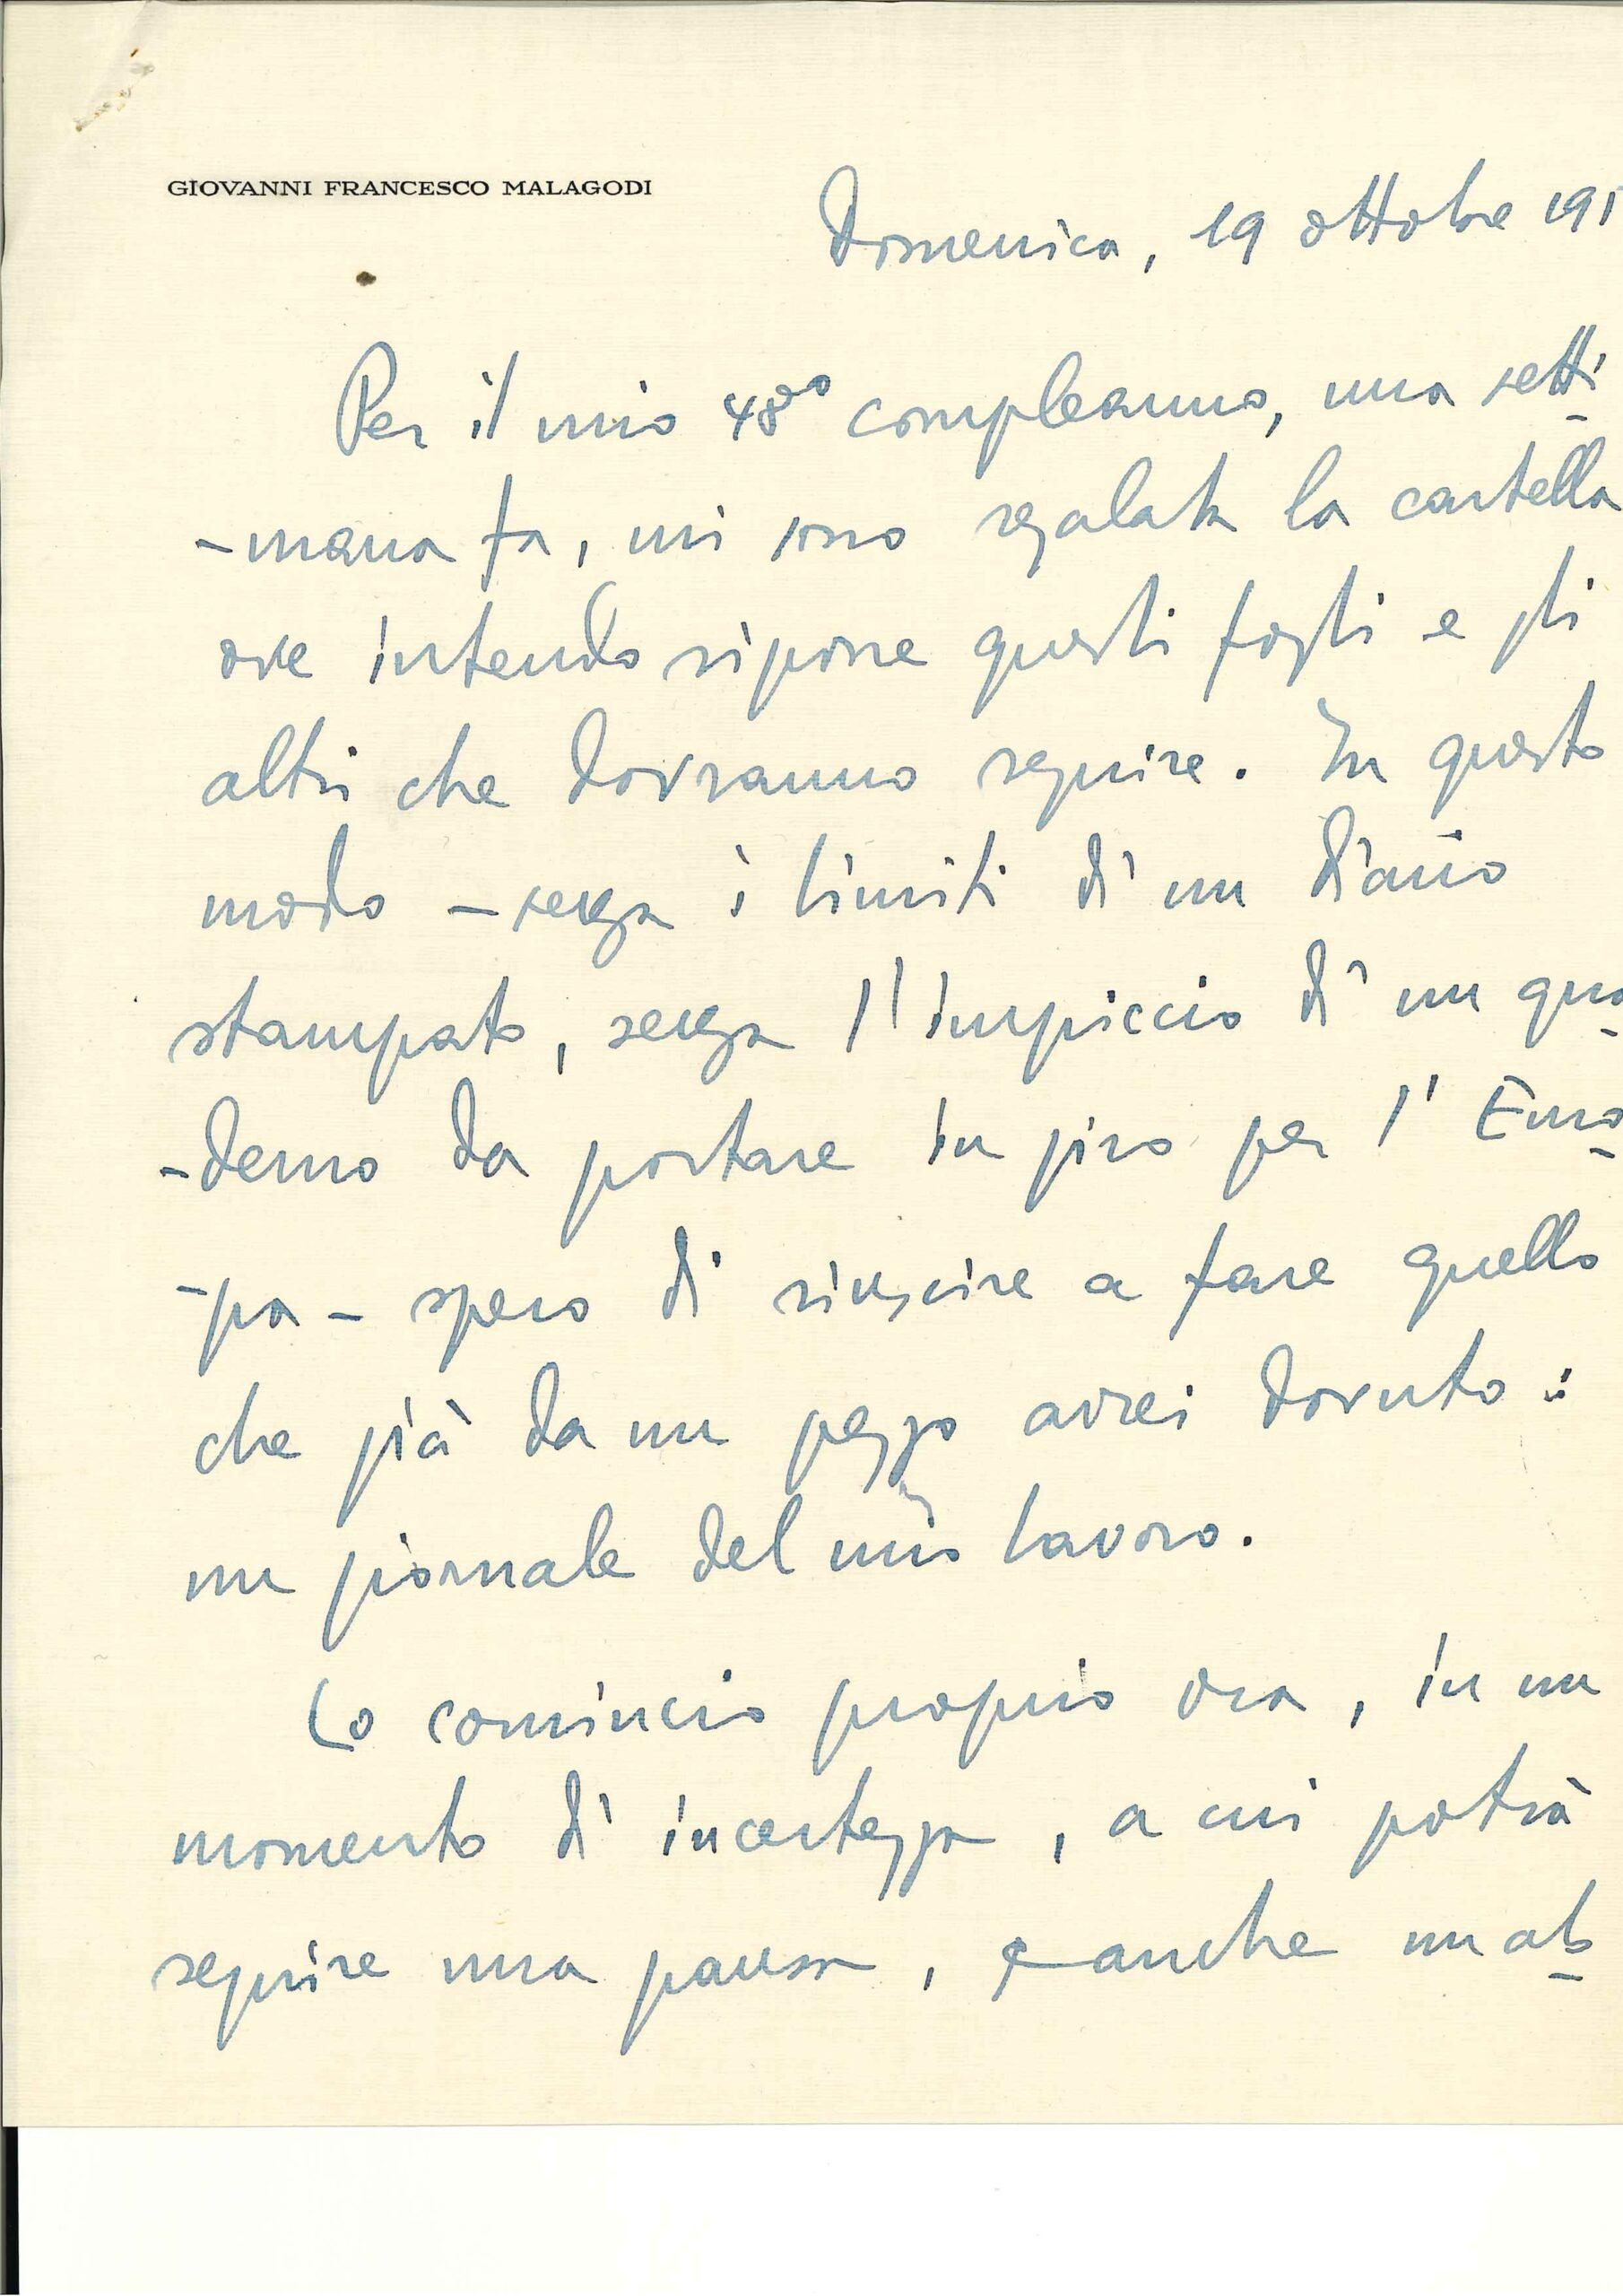 GIOVANNI FRANCESCO MALAGODI
Domenica, 19 ottobre 195
Per il mio 48° compleanno, una setti
-mana fa, mi sono regalata la cartella
ove intendo riporre questi fogli e gli
altri che dovranno seguire. In questo
modo – senza i limiti di un diario
stampato, senza l'impiccio di un qua
-derno da portare in giro per l'Euro
-pa – spero di riuscire a fare quello
che già da un pezzo avrei dovuto :
un giornale del mio lavoro.
Lo comincio proprio ora, in un
momento di incertezza, a cui potrà
seguire una pausa, e anche un ab